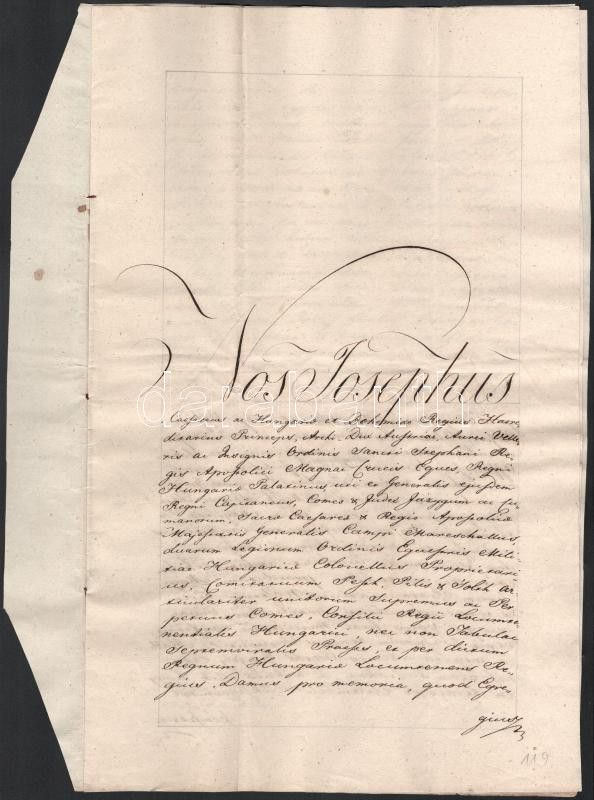 Nos Josephus
Caesareus ac Hungariae et Bohemiae Regius Haere-
ditarius Princeps, Archi Dux Austriae, Aurei Velle-
ris ac Insignis Ordinis Sancti Stephani Re-
gis Apostolici Magnae Crucis Eques, Regni
Hungariae Palatinus, uti et Generalis ejusdem
Regni Capitaneus, Comes & Judex Jazygum ac Cu-
manorum, Sacrae Caesareae & Regio Apostolicae
Majestatis Generalis Campi Mareschallus,
duarum Legionum Ordinis Equestris Mili-
tiae Hungariae Colonellus Proprietari-
us, Comitatuum Pesth, Pilis & Solth ar-
ticulariter unitorum Supremus ac Per-
petuus Comes, Consilii Regii Locumte-
nentialis Hungarici, nec non Tabulae
Septemviralis Praeses, et per dictum
Regnum Hungariae Locumtenens Re-
gius. Damus pro memoria, quod Egre-
gius
119